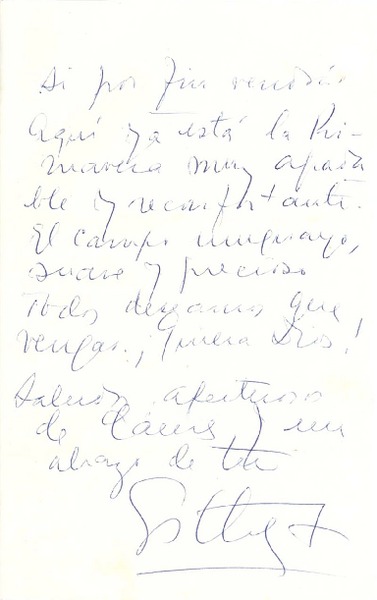 si por fin vendrás
Aquí ya está la Pri-
mavera muy apasi
ble y reconfortante.
El campo uruguayo,
suave y precioso
Todos deseamos que
vengas. ¡Quiera Dios!
Saludos afectuosos
de y un
abrazo de tu